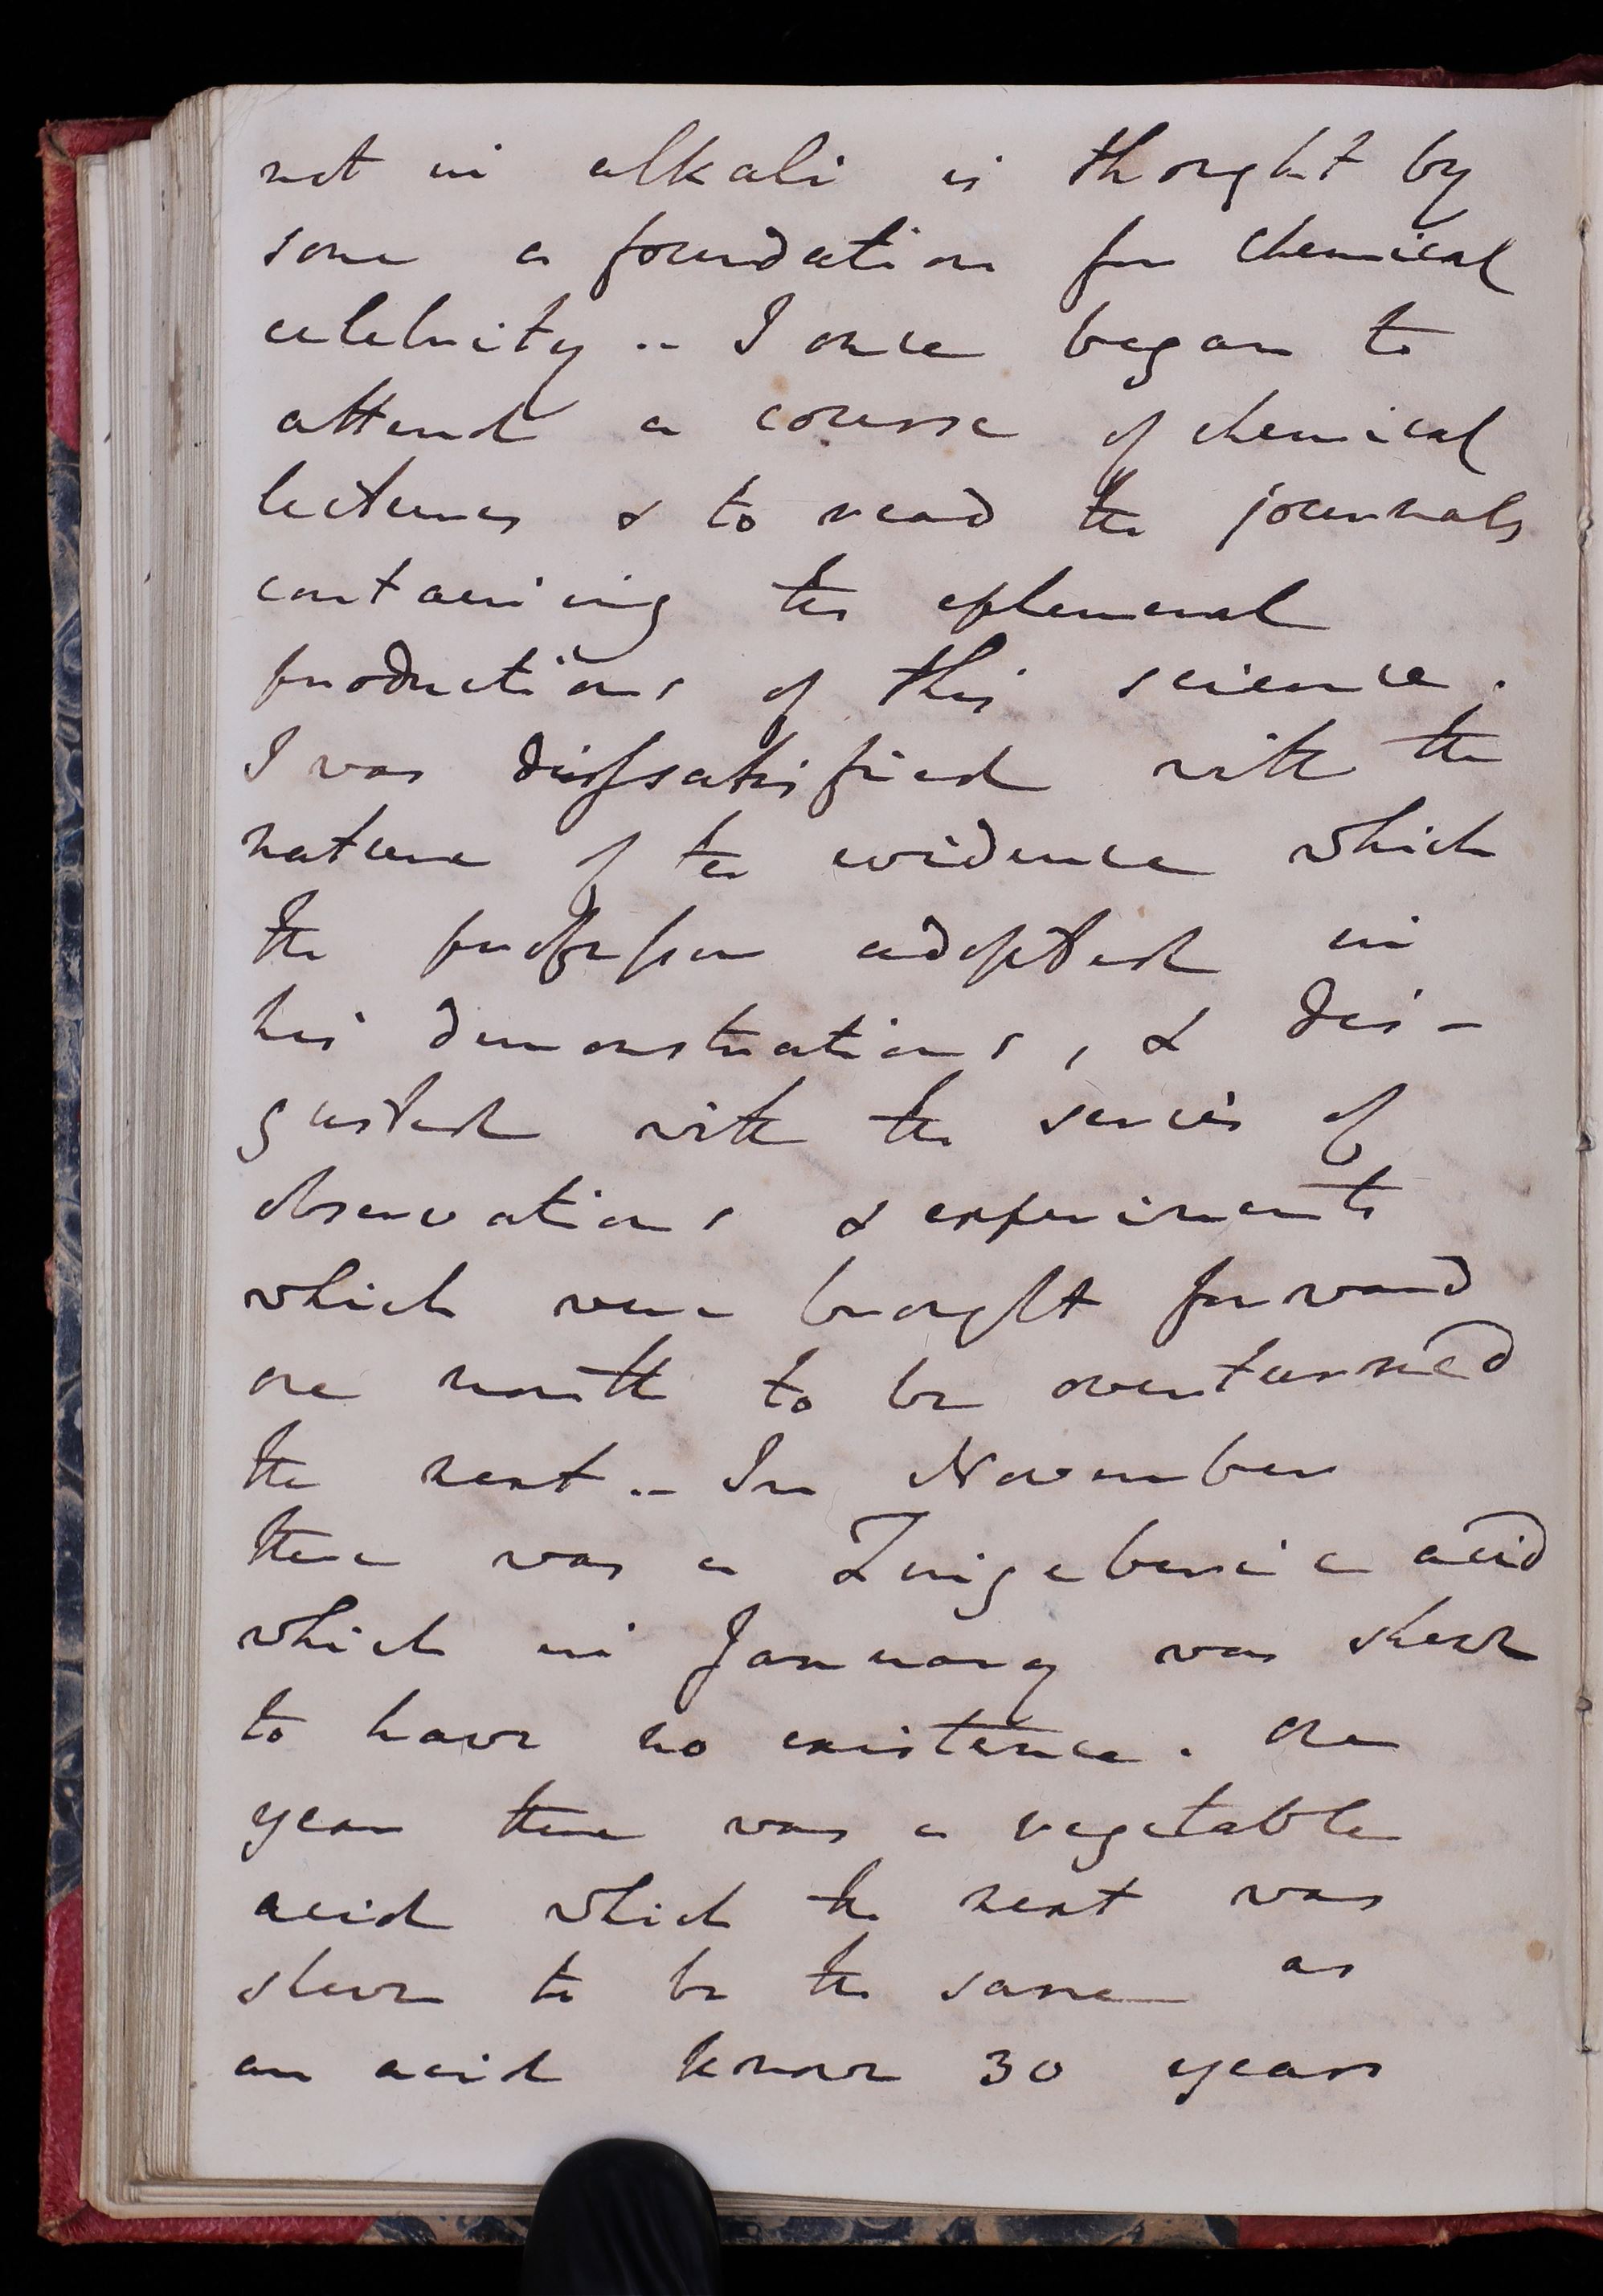 not in alkali is thought by
some a foundation for chemical
celebrity.- I once began to
attend a course of chemical
lectures & to read the journals
containing the ephemeral
productions of this science.
I was dissatisfied with the
nature of the evidence which
the professor adopted in
his demonstrations, & dis-
gusted with the series of
observations & experiments
which were brought forward
one month to be overturned
the next.- In November
there was a Zingeberic acid
which in January was shewn
to have no existence. One
year there was a vegetable
acid which the next was
shewn to be the same as
an acid known 30 years